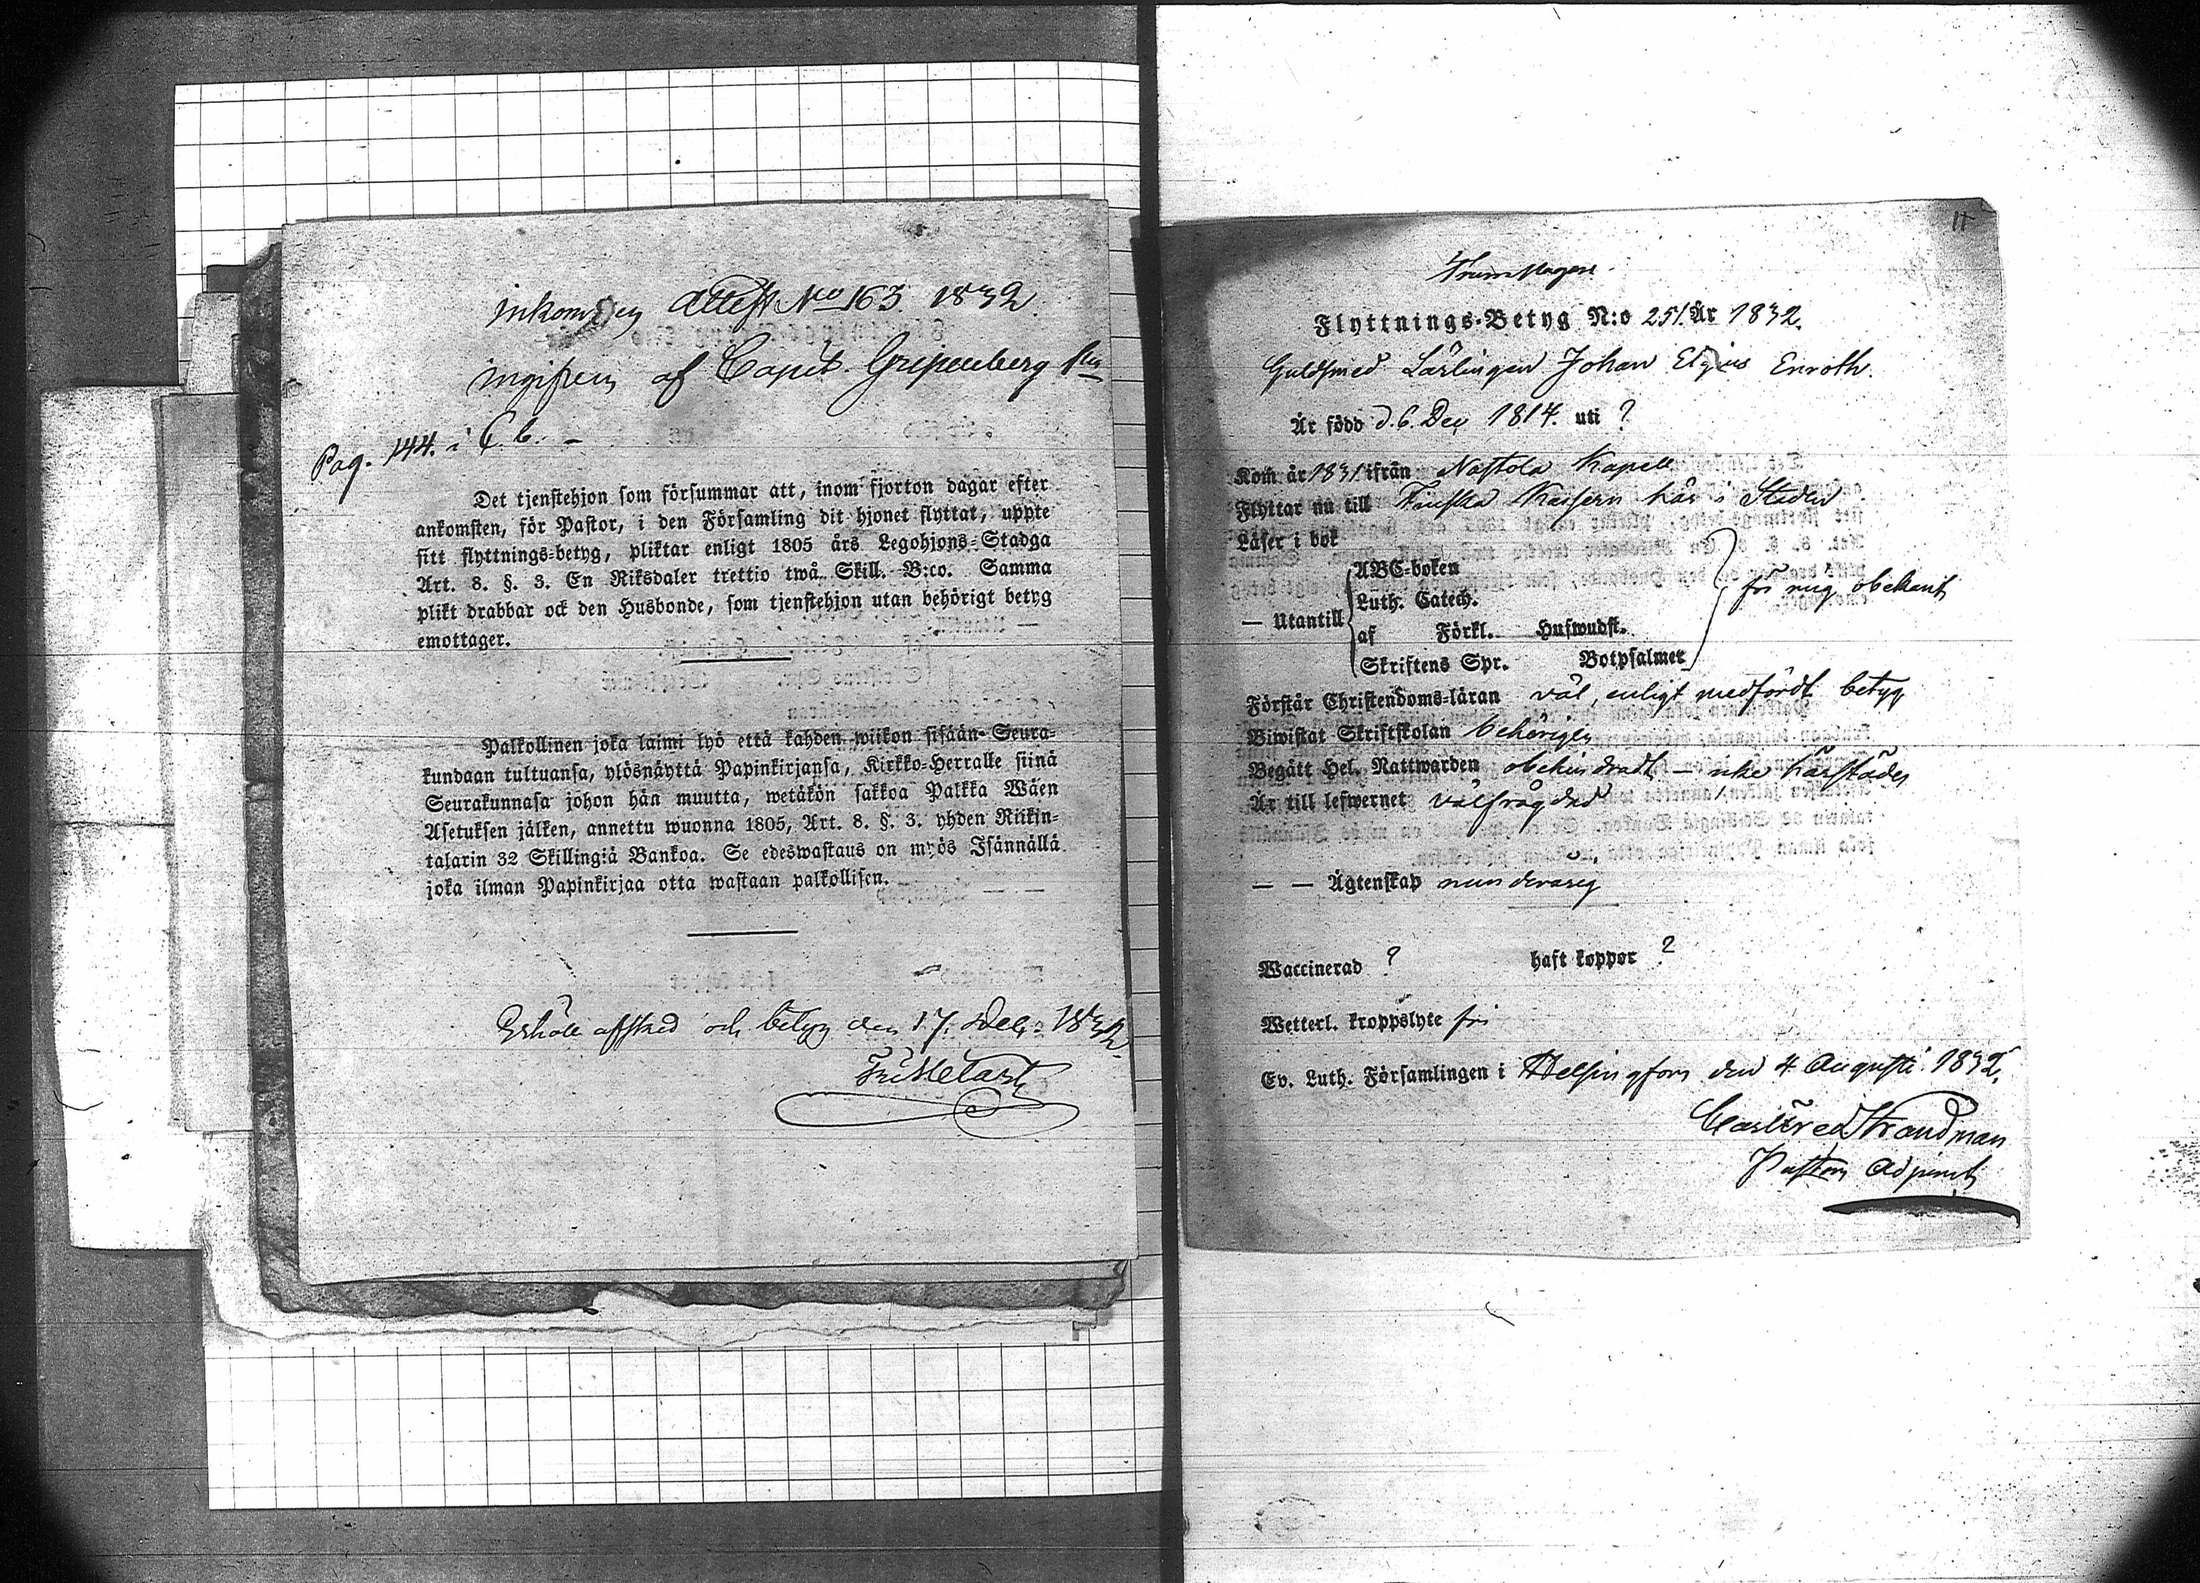 inkommen Attest No 163. 1832.
ingifven af Capit. Gripenberg
Pag. 144. i C. b. –
Det tjenstehjon som försummar att, inom fjorton dagar efter
ankomsten, för Pastor, i den Församling dit hjonet flyttat, uppte
sitt flyttnings-betyg, pliktar enligt 1805 års Legohjons-Stadga
Art. 8. §. 3. En Riksdaler trettio twå Skill. B:co. Samma
plikt drabbar ock den Husbonde, som tjenstehjon utan behörigt betyg
emottager.
Palkollinen joka laimi lyö että kahden wiikon sisään Seura-
kundaan tultuansa, ylösnäyttä Papinkirjansa, Kirkko-Herralle siinä
Seurakunnasa johon hän muutta, wetäkön sakkoa Palkka Wäen
Asetuksen jälken, annettu wuonna 1805, Art. 8. §. 3. yhden Riikin-
talarin 32 Skillingiä Bankoa. Se edeswastaus on myös Isännällä
joka ilman Papinkirjaa otta wastaan palkollisen.
Erhöll afsked och betyg den 17. Dec. 1832.
11
Trumslagare
Flyttnings-Betyg N:o 251. År 1832.
Guldsmed Lärlingen Johan Enroth.
Är född d. 6. Dec 1814. uti ?
Kom år 1831 ifrån Nastola Kapell
Flyttar nu till Finska Kasern här i Staden
Läser i bok
ABC-boken
Luth. Catech.
— Utantill
för mig obekant
af Förkl. Huswudst.
Skriftens Spr. Botpsalmer
Förstår Christendoms-läran väl, enligt medfördt betyg
Biwistat Skriftskolan behörigen
Begått Hel. Nattwarden obehindradt – icke härstädes
Är till lefwernet välfrägdad
— — Ägtenskap
Waccinerad ? haft koppor ?
Wetterl. kroppslyte fri
Ev. Luth. Församlingen i Helsingfors den 4 Augusti 1832.
Carl Fred Strandman
Pastors Adjunct